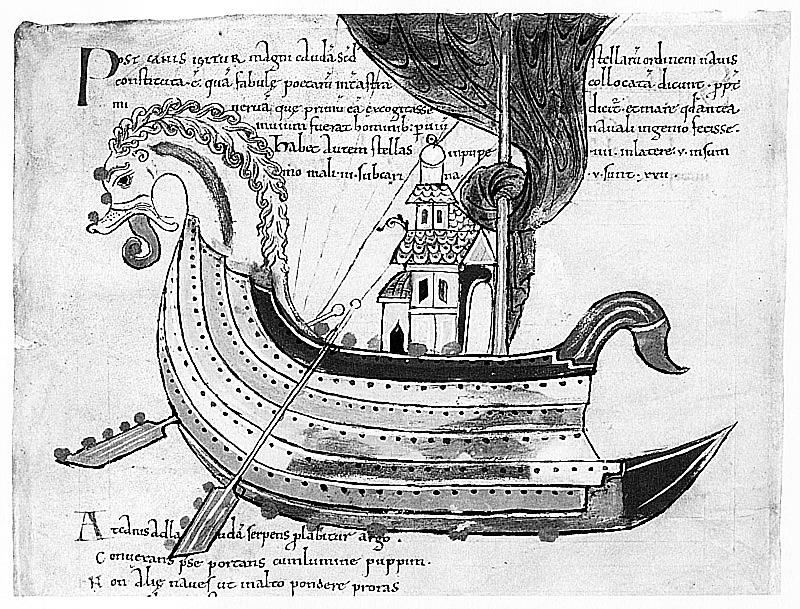 Post canis igitur magni caudā sed stellarū ordinem navis
constituta · ē · quā fabule poetarū int astra collocatā dicunt · ppt̄
mi nerva que primū eā excogitasse dicit et mare qd antea
invium fuerat hominib · p
Habet autem stellas in puppe · iiii · in latere · v · in sum
mo mali · iii · sub cari na · v · sunt · xxii
At canis ad caudā serpens plabitur argo .
Converans pse portans cum lumine puppim .
Non alie naves ut in alto pondere proras